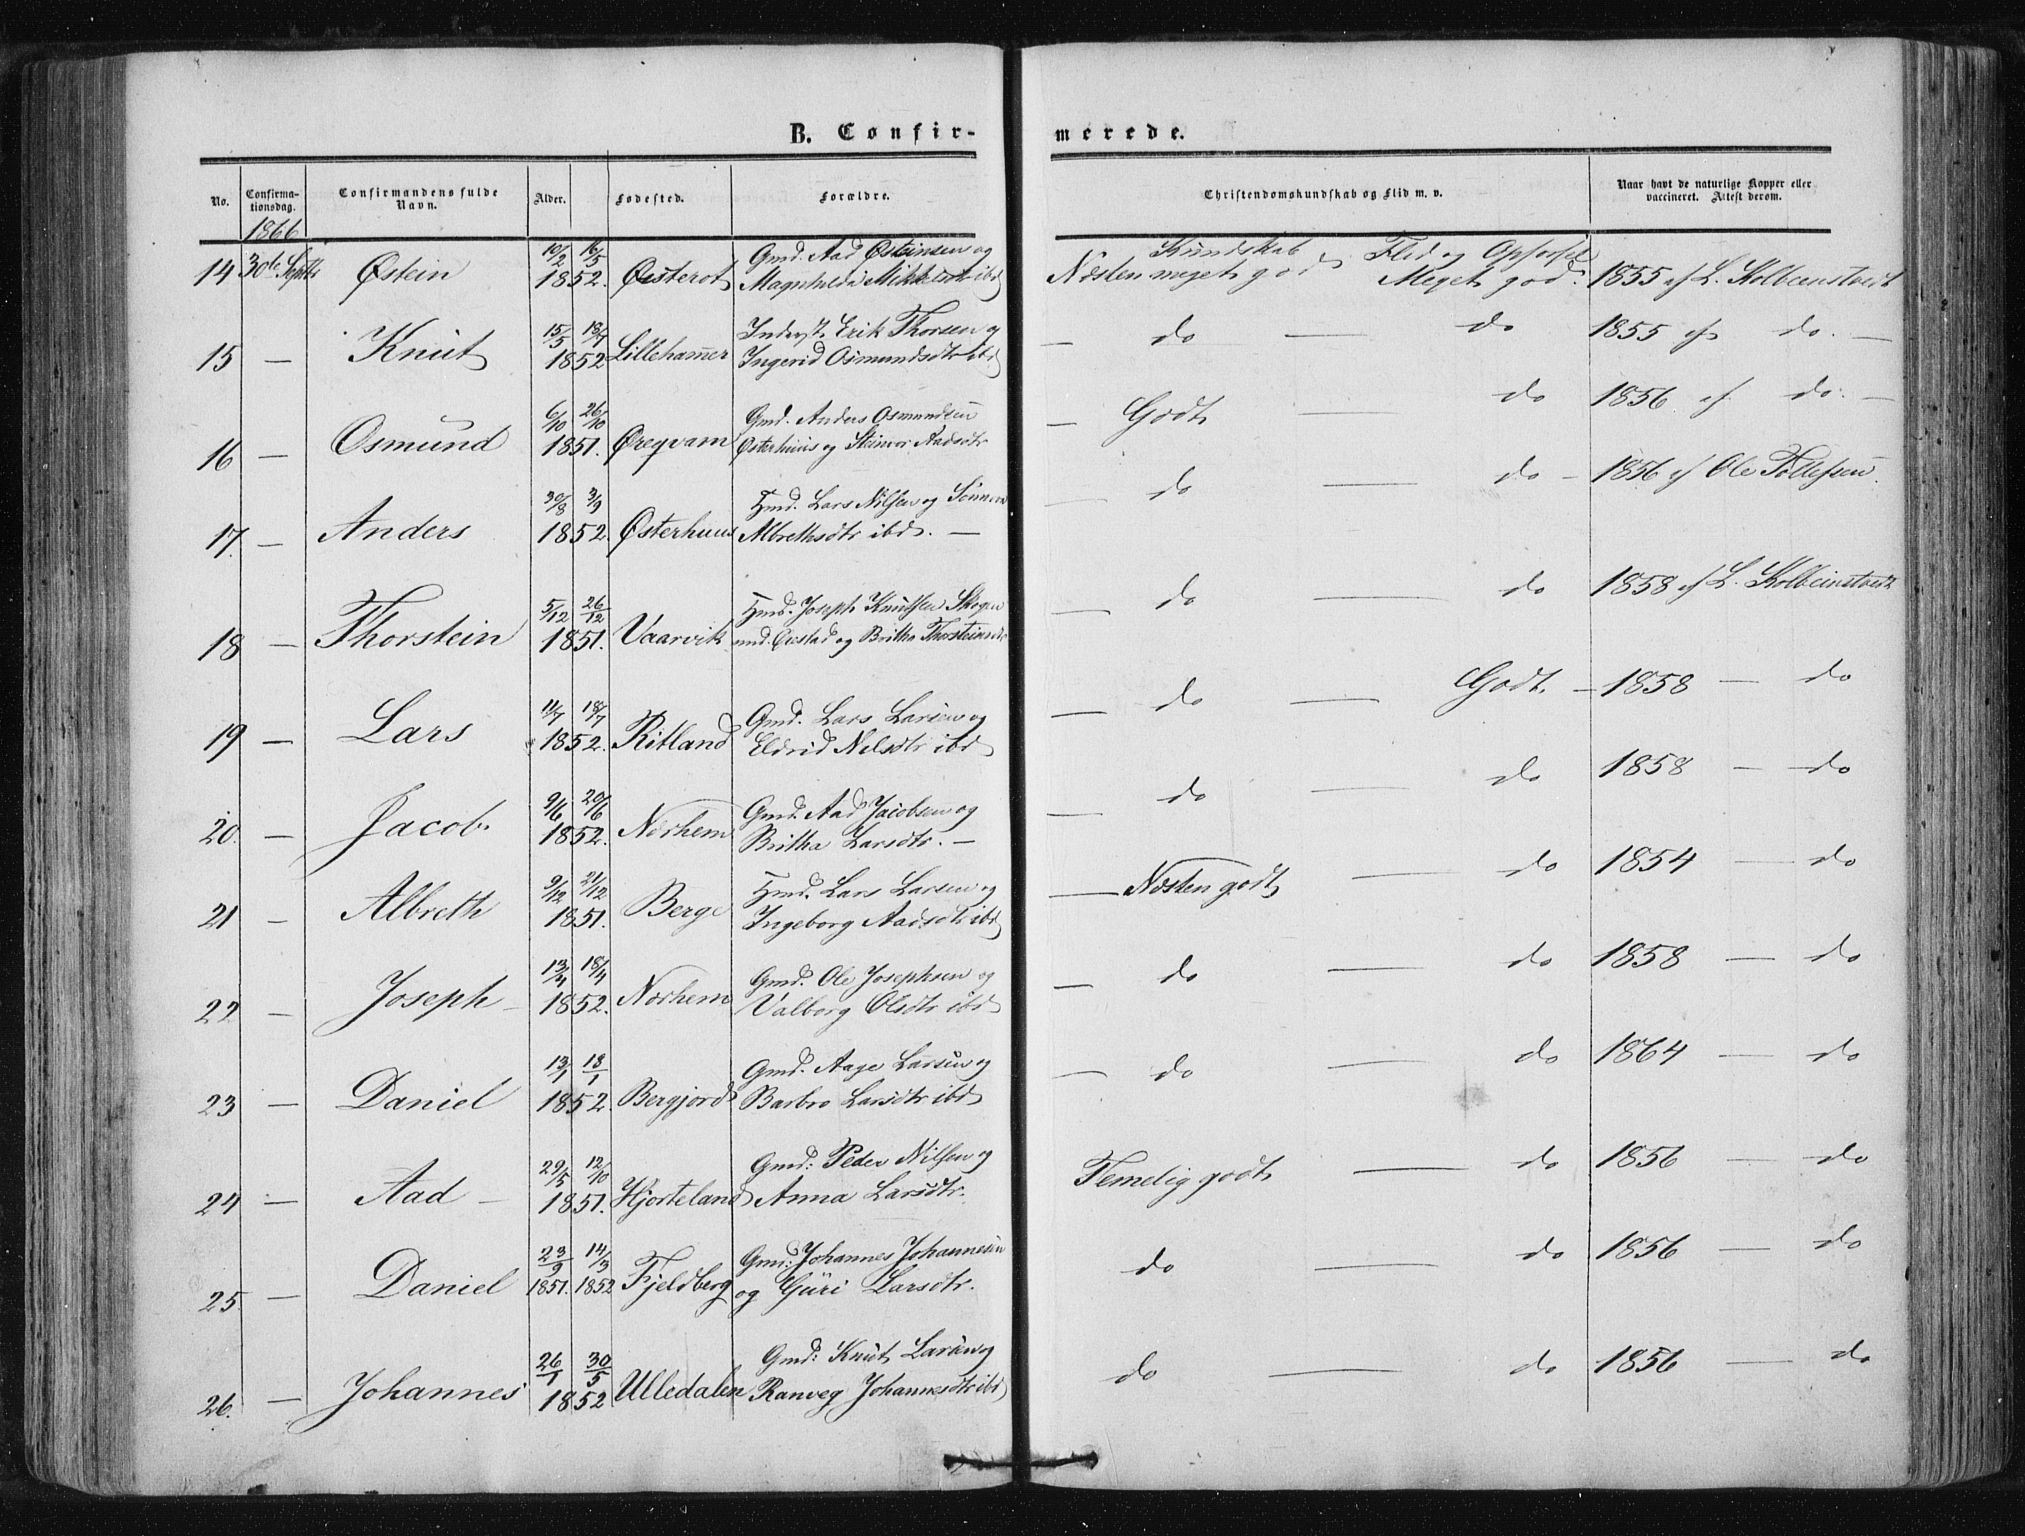 B. Confir-
merede.
No.
Confirma-
tionsdag.
Confirmandens fulde
Navn.
Alder.
Fødested.
Forældre.
Christendomskundskab og Flid m. v.
Naar havt de naturlige Kopper eller
vaccineret. Attest derom.
1866
10/2 16/5 Gmd. Aad Østeinsen og Kundskab Flid og Opførsel
14 30te Septbr Østein 1852. Østerot Magnhilda Mikkelsdtr ibd Næsten meget god Meget god. 1855 af L. Kolbeinstvedt
15/5 18/7 Inderst Erik Thorsen og
15 — Knut 1852 Lillehamer Ingerid Osmundsdtr ibd — do — do 1855 af do. —
6/10 26/10 Gmd. Anders Osmundsen
16 — Osmund 1851. Øregvam Østerhuus og Steinvor Aadsdtr — Godt do 1856 af do. —
30/8 3/9 Hmd. Lars Nilsen og
17. — Anders 1852. Østerhuus Albrethsdtr ibd. — — do — do — 1856 af Ole Tollefsen
5/12 26/12 Hmd. Joseph Knudsen Skogen
18 — Thorstein 1851. Vaarvik und. og Britha Thorsteinsdtr — do — do 1858 af L. Kolbeinstvedt
11/7 18/7 Gmd. Lars Larsen og
19 — Lars 1852. Ritland Eldrid Nelsdtr ibd — do — Godt. — 1858 — do
9/6 20/6 Gmd. Aad Jacobsen og
20. — Jacob 1852. Norhem Britha Larsdtr. — — do — do 1858 — do
9/12 21/12 Hmd. Lars Larsen og
21 — Albreth 1851. Berge Ingeborg Aadsdtr ibd — Næsten godt — do 1854 — do
13/4 18/4 Gmd. Ole Josephsen og
22 — Joseph — 1852. Norhem Valborg Olsdtr ibd — do — do 1858 — do
13/1 18/1 Gmd. Aage Larsen og
23 — Daniel 1852. Bergjord Barbro Larsdtr ibd — do — do 1864 — do
29/5 12/10 Gmd: Peder Nilsen og
24 — Aad — 1851. Hjorteland Anna Larsdtr. Temelig godt — do 1856 — do
23/9 14/3 Gmd: Johannes Johannesen
25. — Daniel 1851. 1852 Fjeldberg og Guri Larsdtr. do — do 1856 — do
26/1 30/5 Gmd: Knut Larsen og
26. — Johannes 1852 Ulledalen Ranveg Johannesdtr ibd do — do 1856 — do